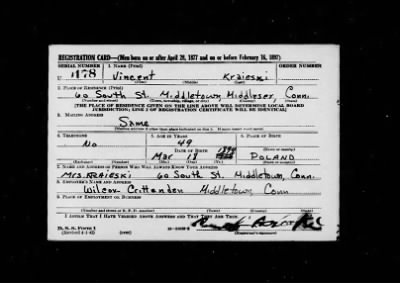 REGISTRATION CARD—(Men born on or after April 28, 1877 and on or before February 16, 1897)
SERIAL NUMBER 1. NAME (Print) ORDER NUMBER
U 1178 Vincent Kraieski
(First) (Middle) (Last)
2. PLACE OF RESIDENCE (Print)
60 South St. Middletown, Middlesex, Conn.
(Number and street) (Town, township, village, or city) (County) (State)
[THE PLACE OF RESIDENCE GIVEN ON THE LINE ABOVE WILL DETERMINE LOCAL BOARD
JURISDICTION; LINE 2 OF REGISTRATION CERTIFICATE WILL BE IDENTICAL]
3. MAILING ADDRESS
Same
[Mailing address if other than place indicated on line 2. If same insert word same]
4. TELEPHONE 5. AGE IN YEARS 6. PLACE OF BIRTH
No 49
DATE OF BIRTH
Mar 18 POLAND
7. NAME AND ADDRESS OF PERSON WHO WILL ALWAYS KNOW YOUR ADDRESS
Mrs. KRAIESKI 60 South St. Middletown, Conn.
8. EMPLOYER'S NAME AND ADDRESS
Wilcox Crittenden Middletown, Conn
9. PLACE OF EMPLOYMENT OR BUSINESS
(Number and street or R. F. D. number) (Town) (County) (State)
I AFFIRM THAT I HAVE VERIFIED ABOVE ANSWERS AND THAT THEY ARE TRUE.
D. S. S. Form 1
(Revised 4-1-42) (over)